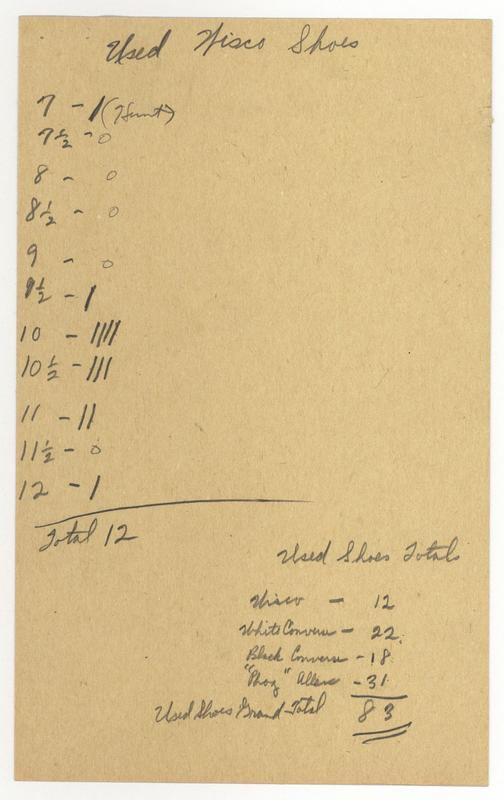 Used Wisco Shoes
7 - 1 (Hunt)
7 1/2 - 0
8 - 0
8 1/2 - 0
9 - 0
9 1/2 - 1
10 - ||||
10 1/2 - |||
11 - ||
11 1/2 - 0
12 - 1
Total 12
Used Shoes Totals
Wisco - 12
White Converse - 22
Black Converse - 18
"Phog" Allens - 31
Used Shoes Grand Total 83